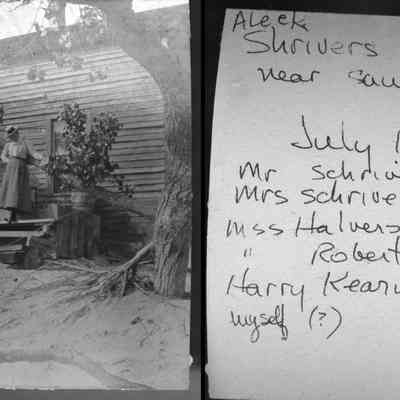 Aleck
Shrivers
near
July
Mr Schriv
Mrs Schrive
Miss Halvers
" Robert
Harry Kear
myself (?)